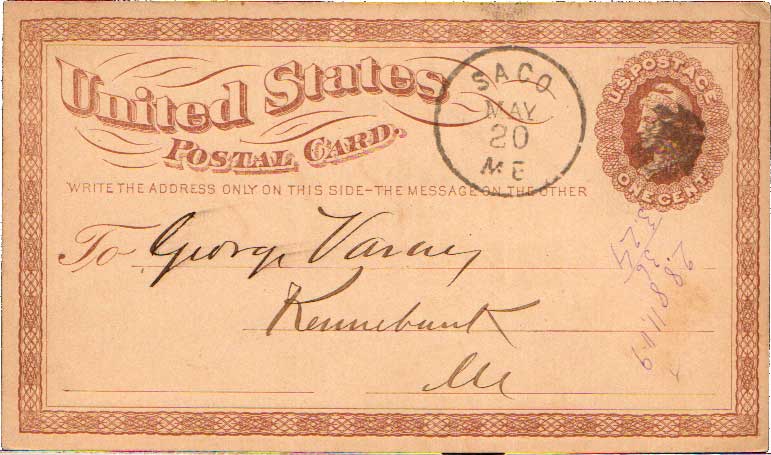 United States
POSTAL CARD.
WRITE THE ADDRESS ONLY ON THIS SIDE-THE MESSAGE ON THE OTHER
SACO
MAY
20
ME
U.S. POSTAGE
ONE CENT
To George Varney
Kennebunk
Me